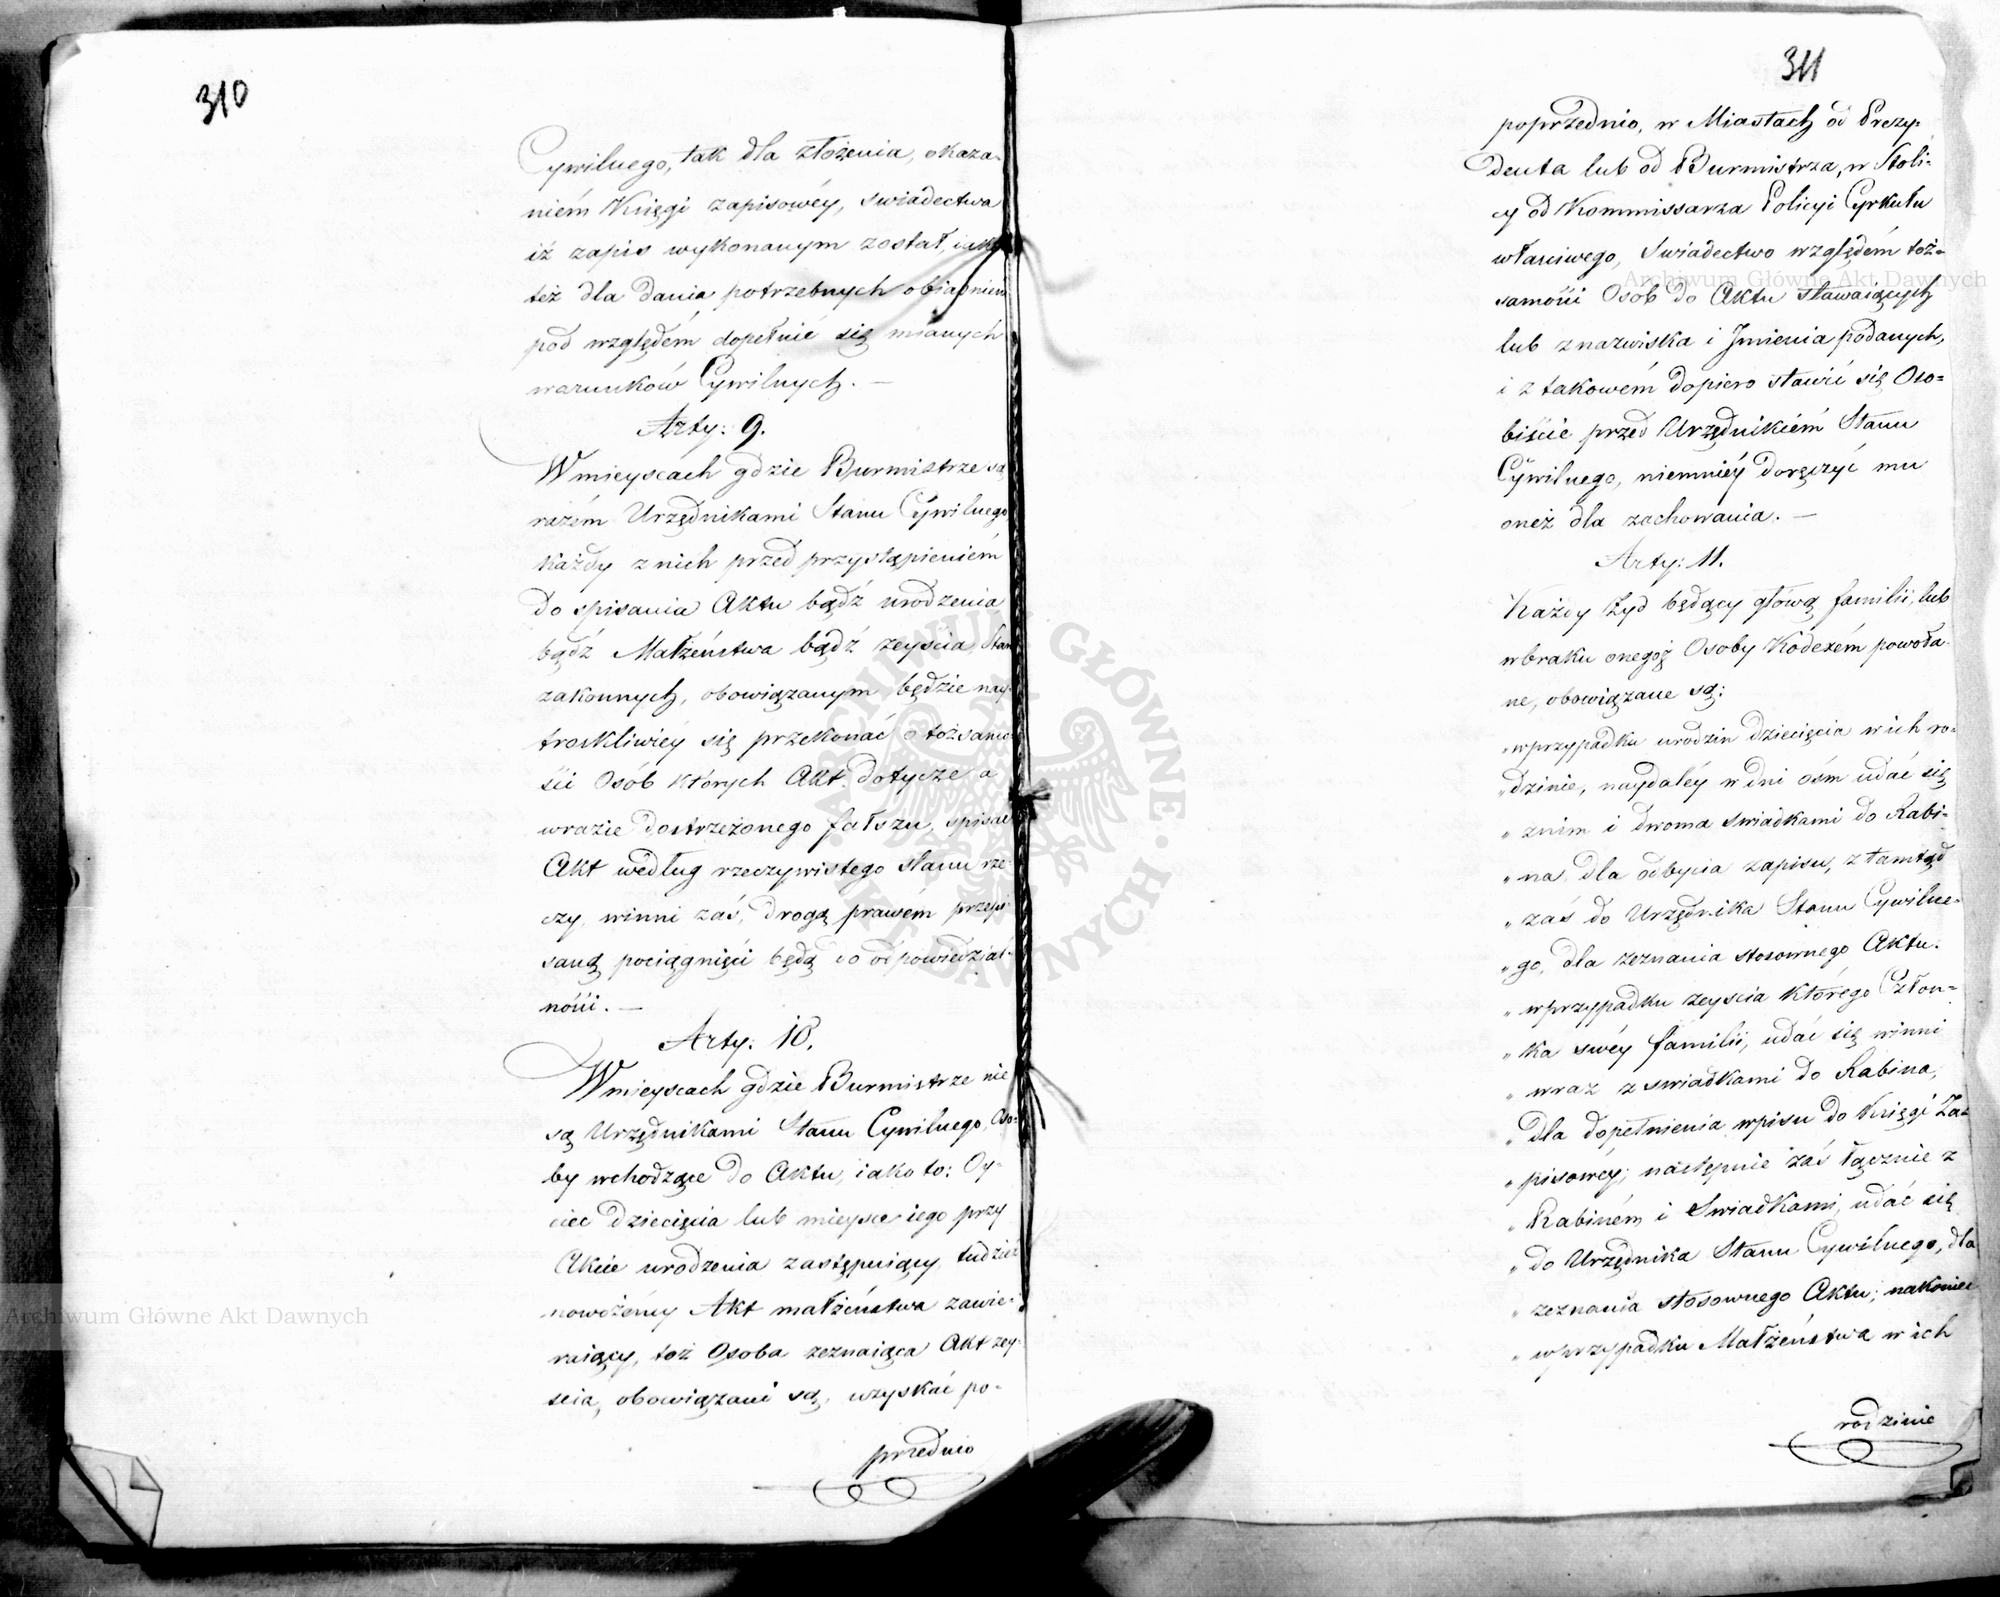 310
Cywilnego, tak dla złożenia, okaza-
niém Księgi zapisowéy, swiadectwa
iż zapis wykonanym został, iako
też dla dania potrzebnych obiaśnień
pod względém dopełnić się mianych
warunków Cywilnych. —
Arty: 9.
W mieyscach gdzie Burmistrze są
razém Urzędnikami Stanu Cywilnego
każdy z nich przed przystąpieniém
do spisania Aktu bądź urodzenia
bądź Małżeństwa bądź zeyścia, Staro
zakonnych, obowiązanym będzie nay-
troskliwiéy się przekonać o tożsamo-
ści Osób których Akt dotycze, a
w razie dostrzeżonego fałszu, spisać
Akt według rzeczywistego stanu rze-
czy, winni zaś, drogą prawém przepi
saną pociągnięci będą do odpowiedzial-
ności. —
Arty: 10.
W mieyscach gdzie Burmistrze nie
są Urzędnikami Stanu Cywilnego, Oso-
by wchodzące do Aktu, iako to: Oy-
ciec dziecięcia lub mieysce iego przy
Akcie urodzenia zastępuiący, tudzież
nowożeńcy Akt małżeństwa zawie-
raiący, toż Osoba zeznaiąca Akt zey-
ścia, obowiązani są, uzyskać po-
przednio
311
poprzednio, w Miastach od Prezy-
denta lub od Burmistrza, w Stoli-
cy od Kommissarza Policyi Cyrkułu
właściwego, Swiadectwo względém toż-
samości Osób do Aktu stawaiących
lub z nazwiska i Jmienia podanych,
i z takowém dopiero stawić się Oso-
biście przed Urzędnikiém Stanu
Cywilnego, niemniéy doręczyć mu
oneż dla zachowania. —
Arty: 11.
Każdy Żyd będący głową familii, lub
w braku onegoż Osoby Kodexém powoła-
ne, obowiązane są:
„ w przypadku urodzin dziecięcia w ich ro-
„ dzinie, naydaléy w dni ośm udać się
„ z nim i dwoma swiadkami do Rabi-
„ na dla odbycia zapisu, z tamtąd
„ zaś do Urzędnika Stanu Cywilne-
„ go, dla zeznania stosownego Aktu.
„ w przypadku zeyscia którégo Człon-
„ ka swéy familii, udać się winni
„ wraz z swiadkami do Rabina,
„ dla dopełnienia wpisu do Księgi Za-
„ pisowéy, następnie zaś łącznie z
„ Rabiném i Swiadkami, udać się
„ do Urzędnika Stanu Cywilnego, dla
„ zeznania stosownego Aktu; nakoniec
„ w przypadku Małżeństwa w ich
rodzinie
Archiwum Główne Akt Dawnych
Archiwum Główne Akt Dawnych
ARCHIWUM GŁÓWNE AKT DAWNYCH